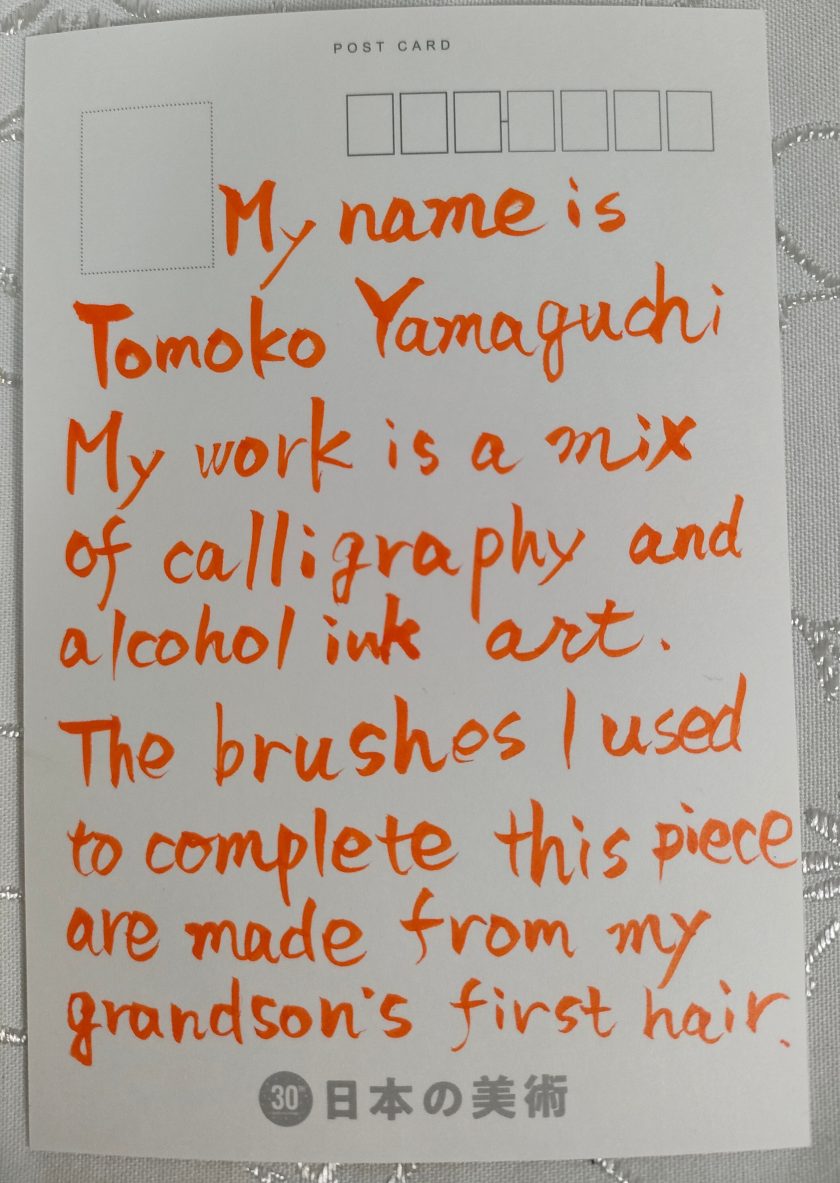 POST CARD
My name is
Tomoko Yamaguchi
My work is a mix
of calligraphy and
alcohol ink art.
The brushes I used
to complete this piece
are made from my
grandson's first hair.
30 日本の美術